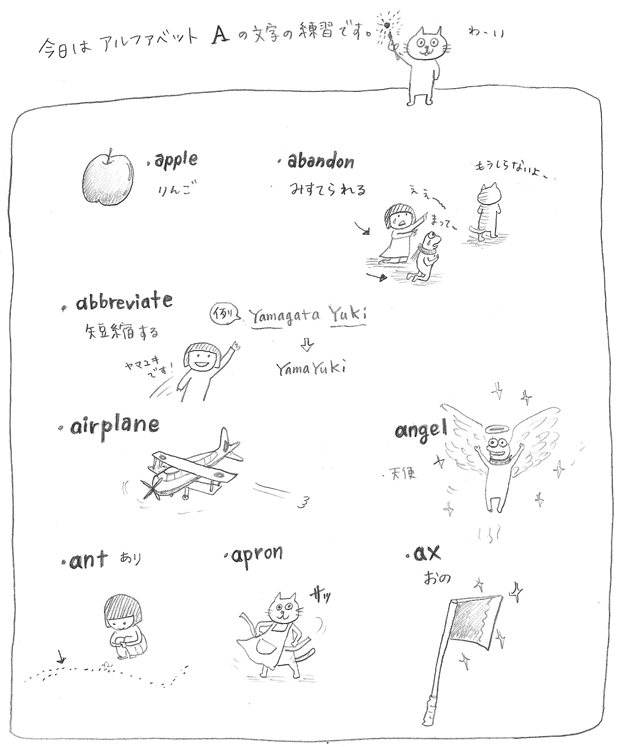 今日は アルファベット A の文字の練習です。
わーい
・apple
りんご
・abandon
みすてられる
もうしらないよー
ええ〜
まって〜
・abbreviate
短縮する
例) Yamagata Yuki
YamaYuki
ヤマユキ
です!
・airplane
angel
・天使
・ant あり
・apron
サッ
・ax
おの